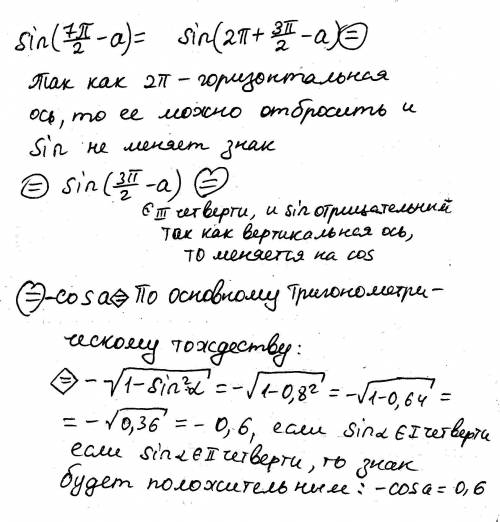 sin(7π/2 - a) = sin(2π + 3π/2 - a) ⊜
Так как 2π - горизонтальная
ось, то ее можно отбросить и
sin не меняет знак
⊜ sin(3π/2 - a) ⊜
∈ III четверти, и sin отрицательний
так как вертикальная ось,
то меняется на cos
⊜ -cos a ⊜ По основному тригонометри-
ческому тождеству:
⊜ -√(1-sin²α) = -√(1-0,8²) = -√(1-0,64) =
= -√0,36 = - 0,6, если sinα ∈ I четверти
если sinα ∈ II четверти, то знак
будет положительним: -cos a = 0,6